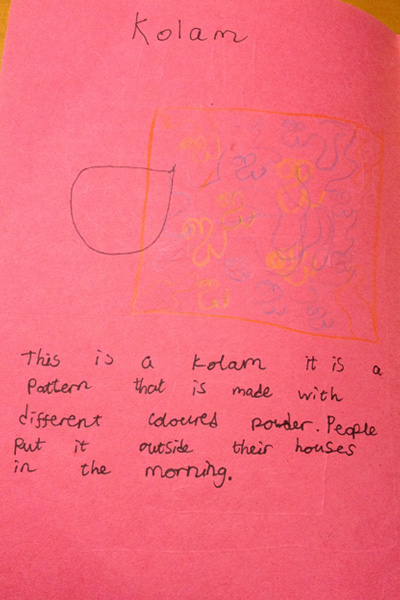 Kolam
This is a Kolam it is a
pattern that is made with
different coloured powder. People
put it outside their houses
in the morning.